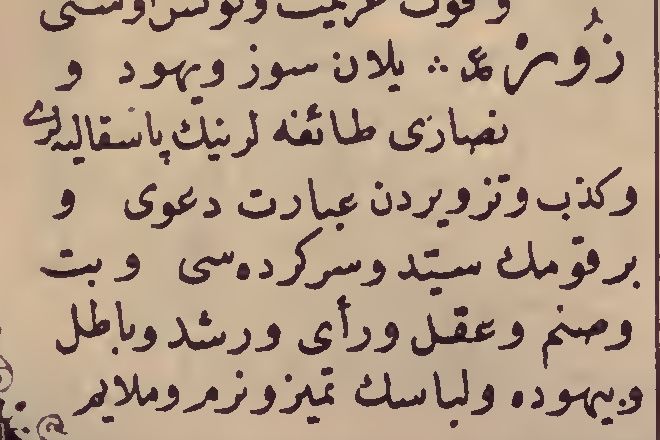 و قوت عزيمت و
زُور عـ ∴ يلان سوز و يهود و
نصارى طائفه لرينك پاسقاليه لرى
و كذب و تزويردن عبارت دعوى و
بر قومك سيّد و سركرده سى و بت
و صنم و عقل و رأى و رشد و باطل
و بيهوده و لباسك تميز و نرم و ملايم